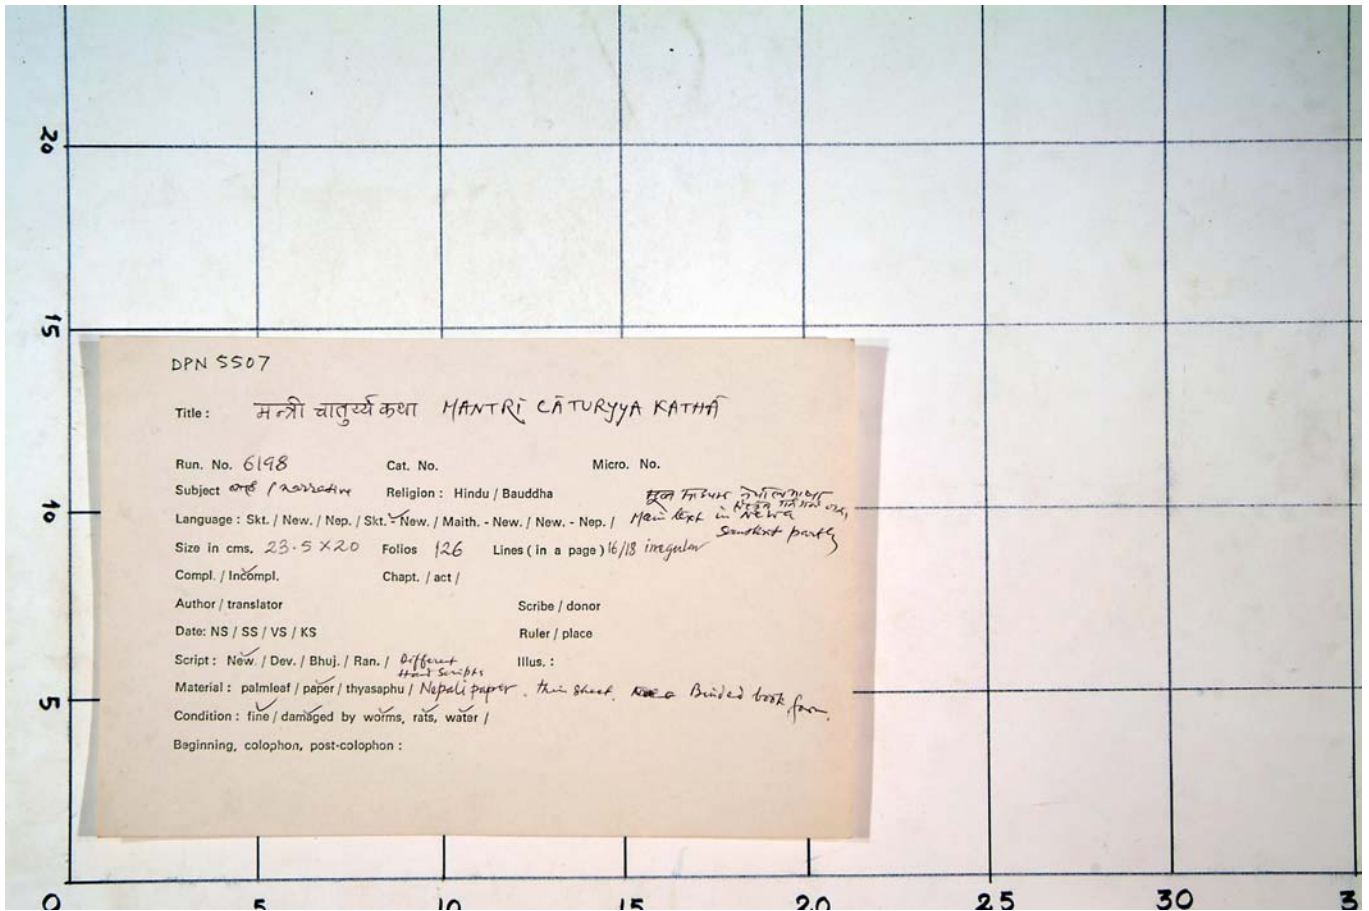 20
15
10
5
0 5 10 15 20 25 30 3
DPN 5507
Title : मन्त्री चातुर्य्य कथा MANTRĪ CĀTURYYA KATHĀ
Run. No. 6198 Cat. No. Micro. No.
Subject / narrative Religion : Hindu / Bauddha
Language : Skt. / New. / Nep. / Skt. - New. / Maith. - New. / New. - Nep. / Main text in Newa
Sanskrit partly
Size in cms. 23.5 X 20 Folios 126 Lines ( in a page ) 16/18 irregular
Compl. / Incompl. Chapt. / act /
Author / translator Scribe / donor
Date: NS / SS / VS / KS Ruler / place
Script : New. / Dev. / Bhuj. / Ran. / Different Illus. :
Hand Scripts
Material : palmleaf / paper / thyasaphu / Nepali paper. thin sheet. Binded book form.
Condition : fine / damaged by worms, rats, water /
Beginning, colophon, post-colophon :